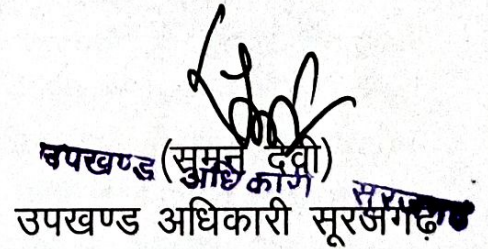 (सुमन देवी)
उपखण्ड अधिकारी सूरजगढ़
उपखण्ड अधिकारी सूरजगढ़